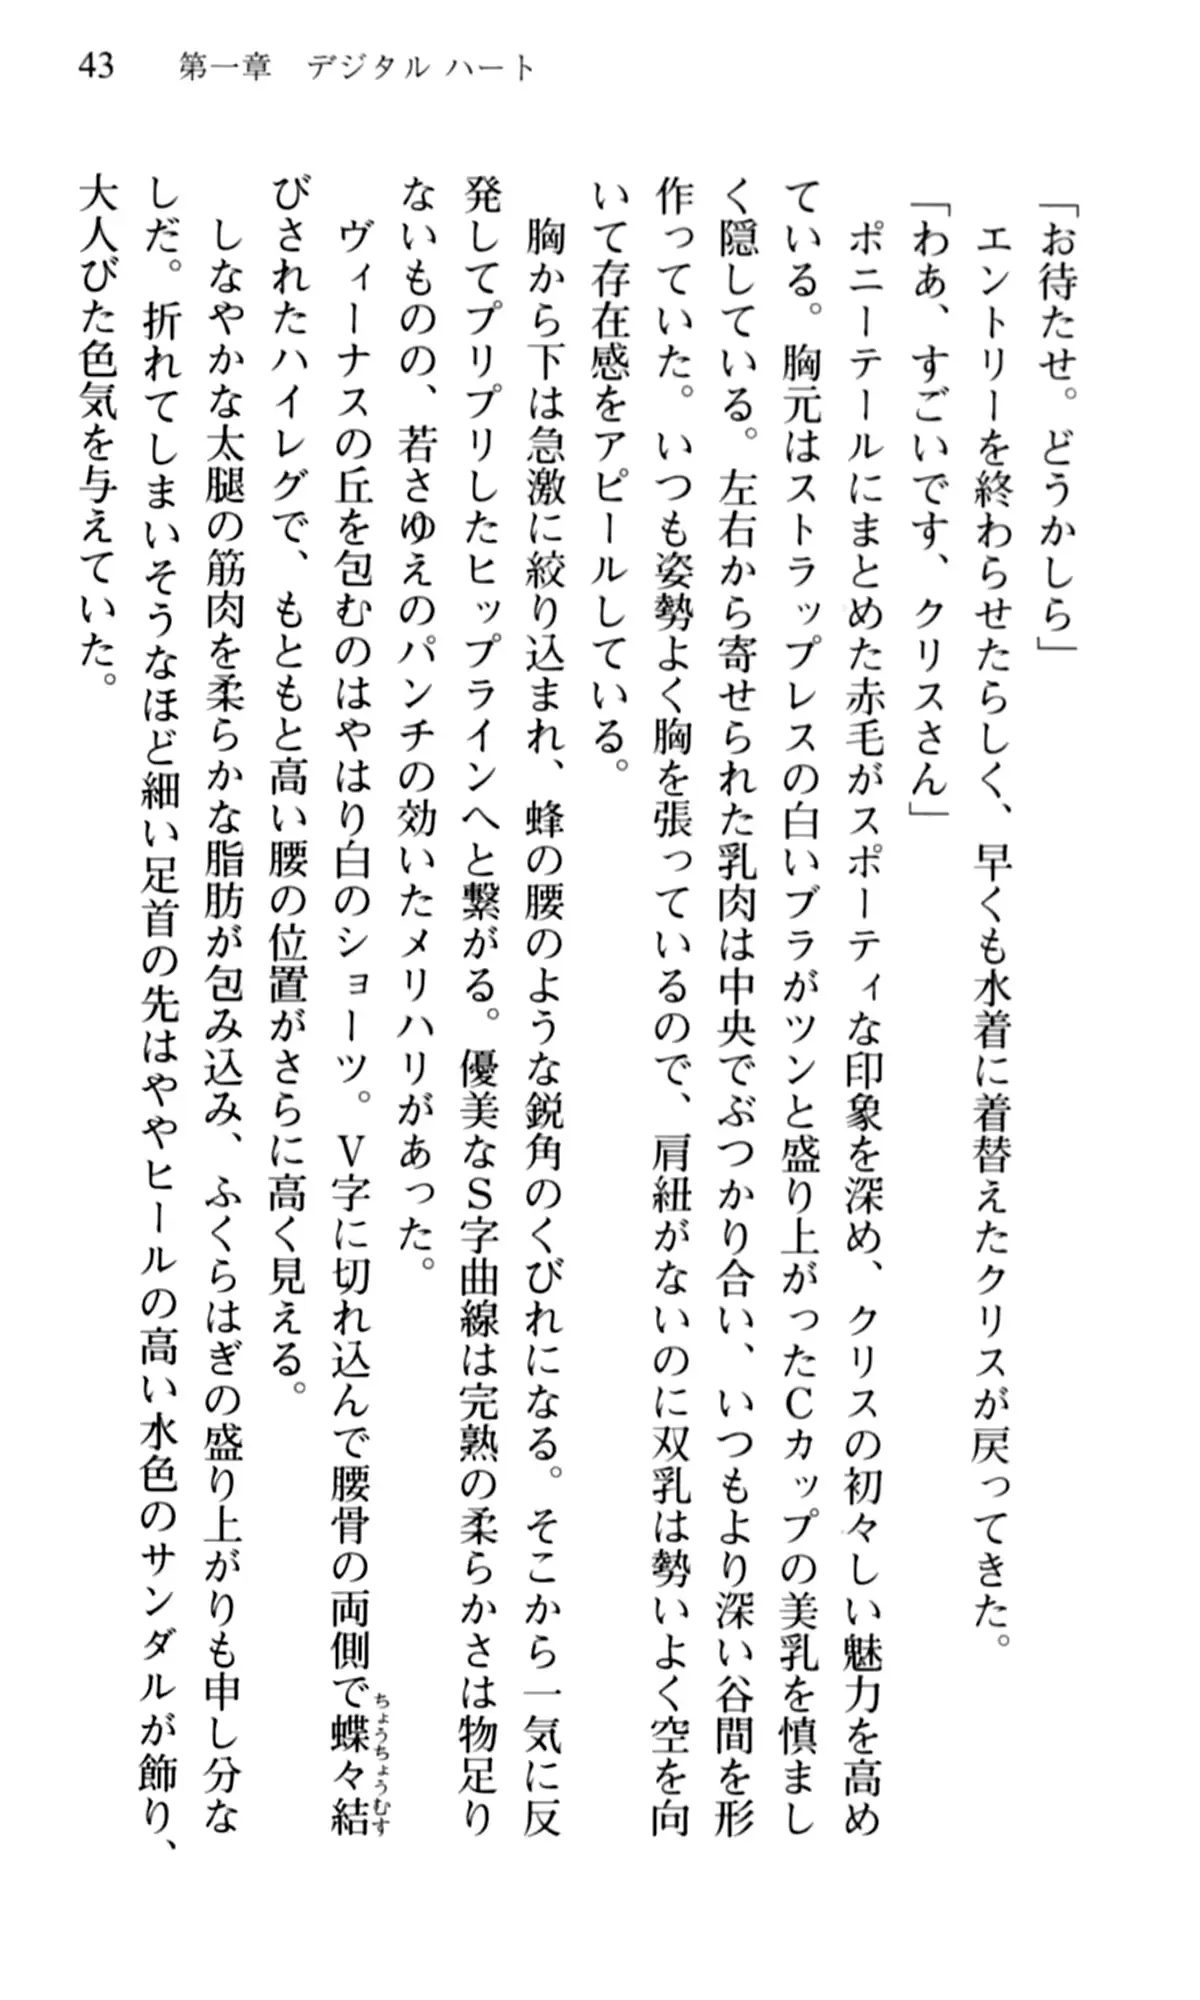 43　第一章　デジタル ハート
「お待たせ。どうかしら」
　エントリーを終わらせたらしく、早くも水着に着替えたクリスが戻ってきた。
「わあ、すごいです、クリスさん」
　ポニーテールにまとめた赤毛がスポーティな印象を深め、クリスの初々しい魅力を高め
ている。胸元はストラップレスの白いブラがツンと盛り上がったCカップの美乳を慎まし
く隠している。左右から寄せられた乳肉は中央でぶつかり合い、いつもより深い谷間を形
作っていた。いつも姿勢よく胸を張っているので、肩紐がないのに双乳は勢いよく空を向
いて存在感をアピールしている。
　胸から下は急激に絞り込まれ、蜂の腰のような鋭角のくびれになる。そこから一気に反
発してプリプリしたヒップラインへと繋がる。優美なS字曲線は完熟の柔らかさは物足り
ないものの、若さゆえのパンチの効いたメリハリがあった。
　ヴィーナスの丘を包むのはやはり白のショーツ。V字に切れ込んで腰骨の両側で蝶々結
ちょうちょうむす
びされたハイレグで、もともと高い腰の位置がさらに高く見える。
　しなやかな太腿の筋肉を柔らかな脂肪が包み込み、ふくらはぎの盛り上がりも申し分な
しだ。折れてしまいそうなほど細い足首の先はややヒールの高い水色のサンダルが飾り、
大人びた色気を与えていた。